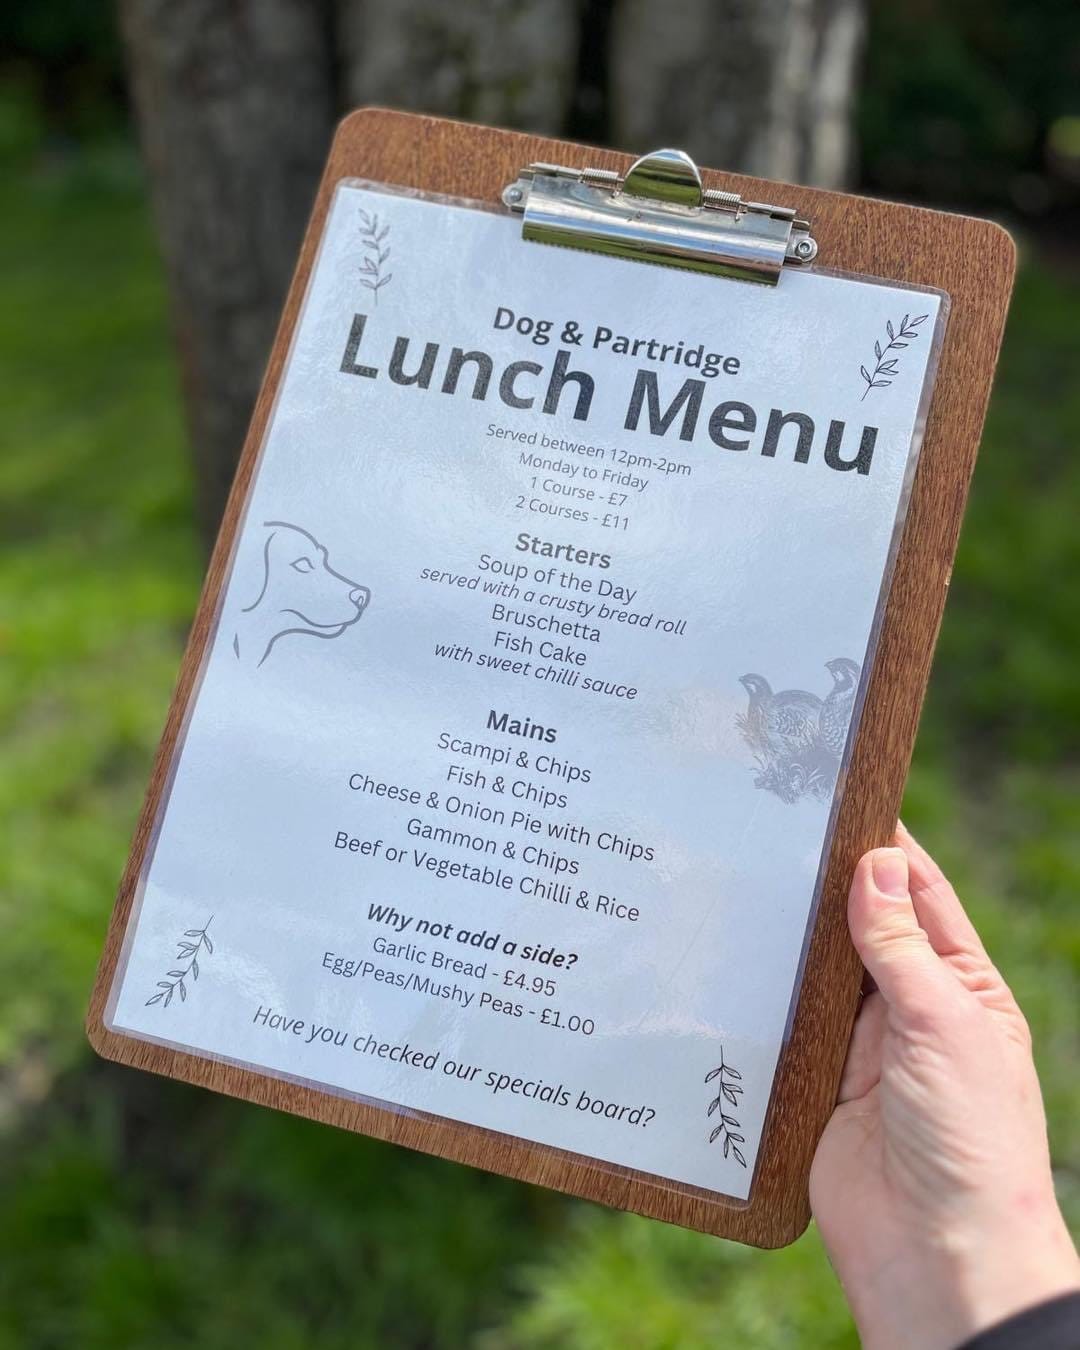 Dog & Partridge
Lunch Menu
Served between 12pm-2pm
Monday to Friday
1 Course - £7
2 Courses - £11
Starters
Soup of the Day
served with a crusty bread roll
Bruschetta
Fish Cake
with sweet chilli sauce
Mains
Scampi & Chips
Fish & Chips
Cheese & Onion Pie with Chips
Gammon & Chips
Beef or Vegetable Chilli & Rice
Why not add a side?
Garlic Bread - £4.95
Egg/Peas/Mushy Peas - £1.00
Have you checked our specials board?